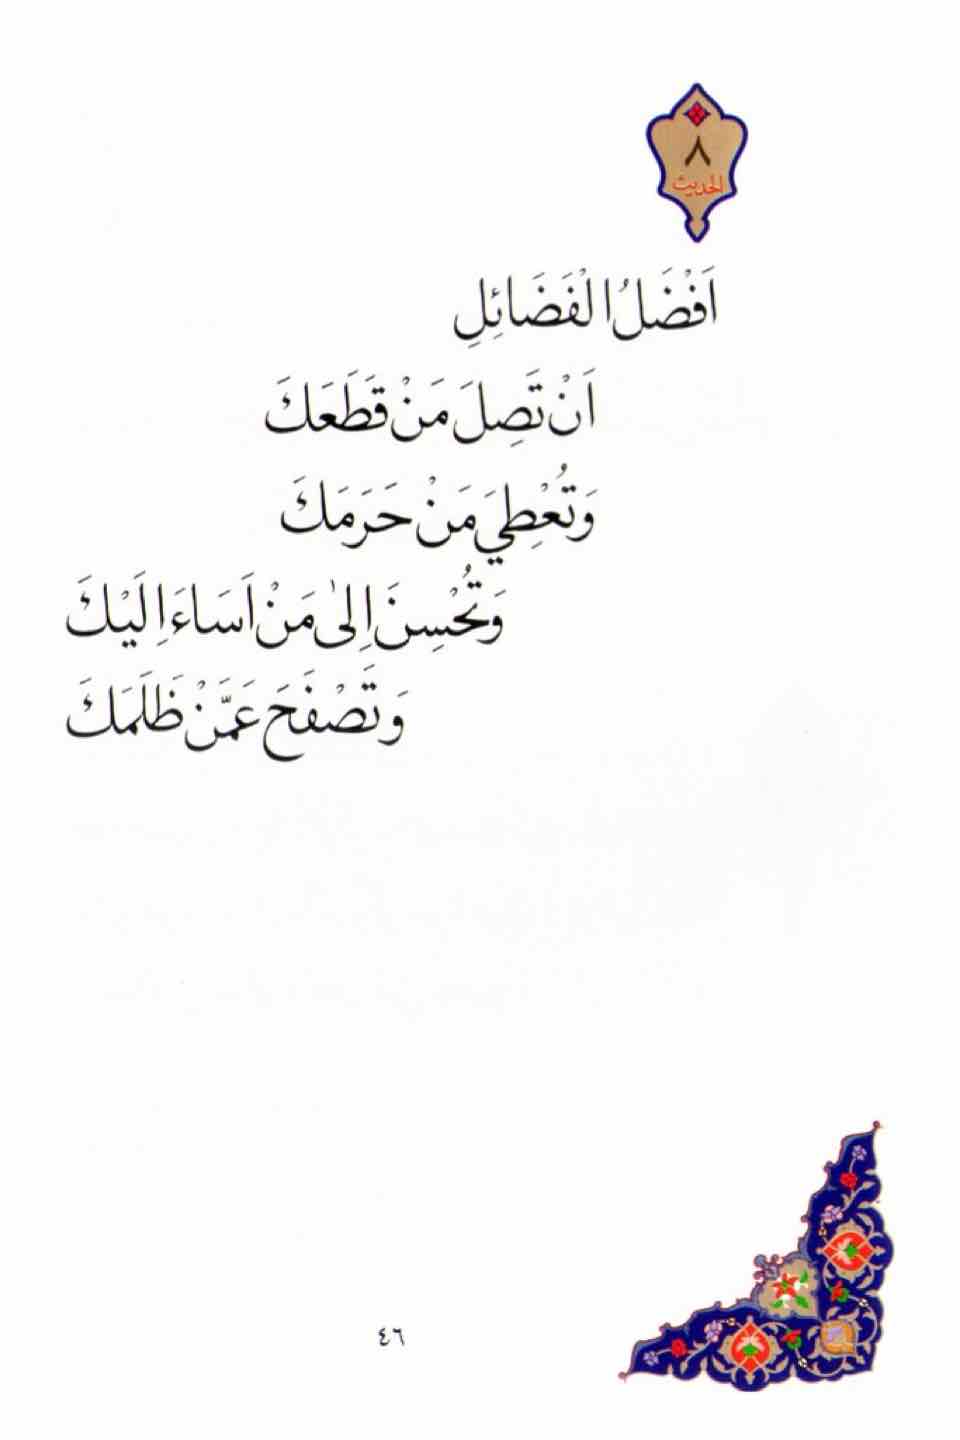 ٨
الحديث
اَفْضَلُ الْفَضَائِلِ
اَنْ تَصِلَ مَنْ قَطَعَكَ
وَتُعْطِيَ مَنْ حَرَمَكَ
وَتُحْسِنَ اِلىٰ مَنْ اَسَاءَ اِلَيْكَ
وَتَصْفَحَ عَمَّنْ ظَلَمَكَ
٤٦